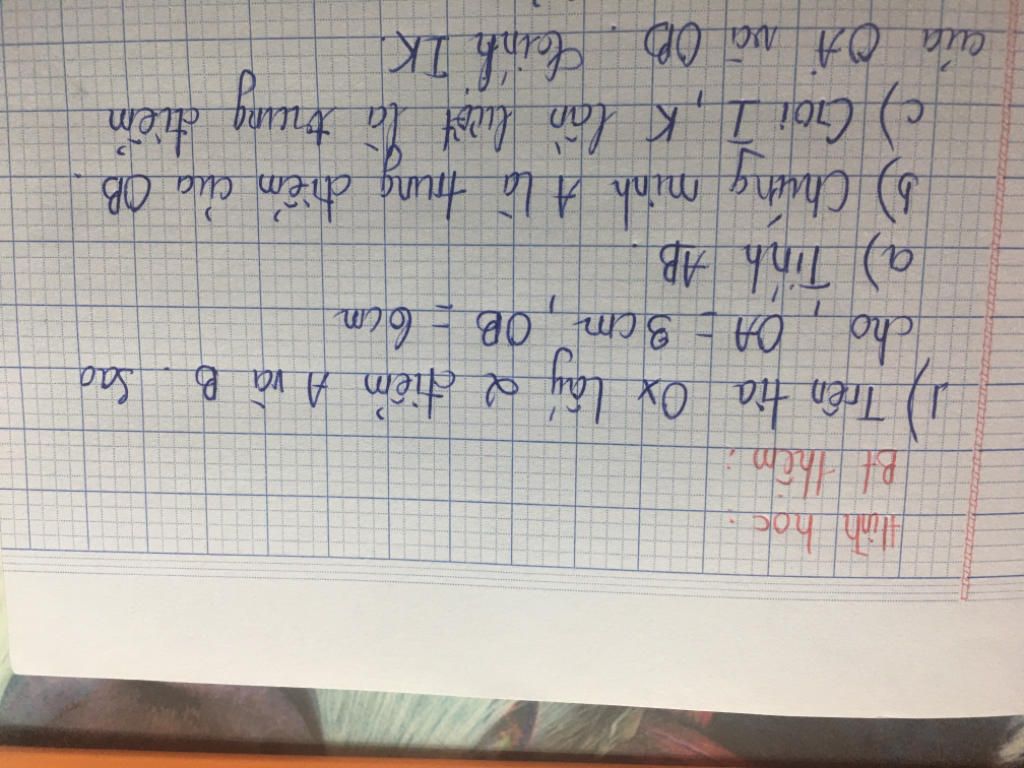 Hình học :
Bt thêm :
1) Trên tia Ox lấy 2 điểm A và B . Sao
cho , OA = 3 cm , OB = 6 cm
a) Tính AB .
b) Chứng minh A là trung điểm của OB .
c) Gọi I , K lần lượt là trung điểm
của OA và OB . Tính IK .